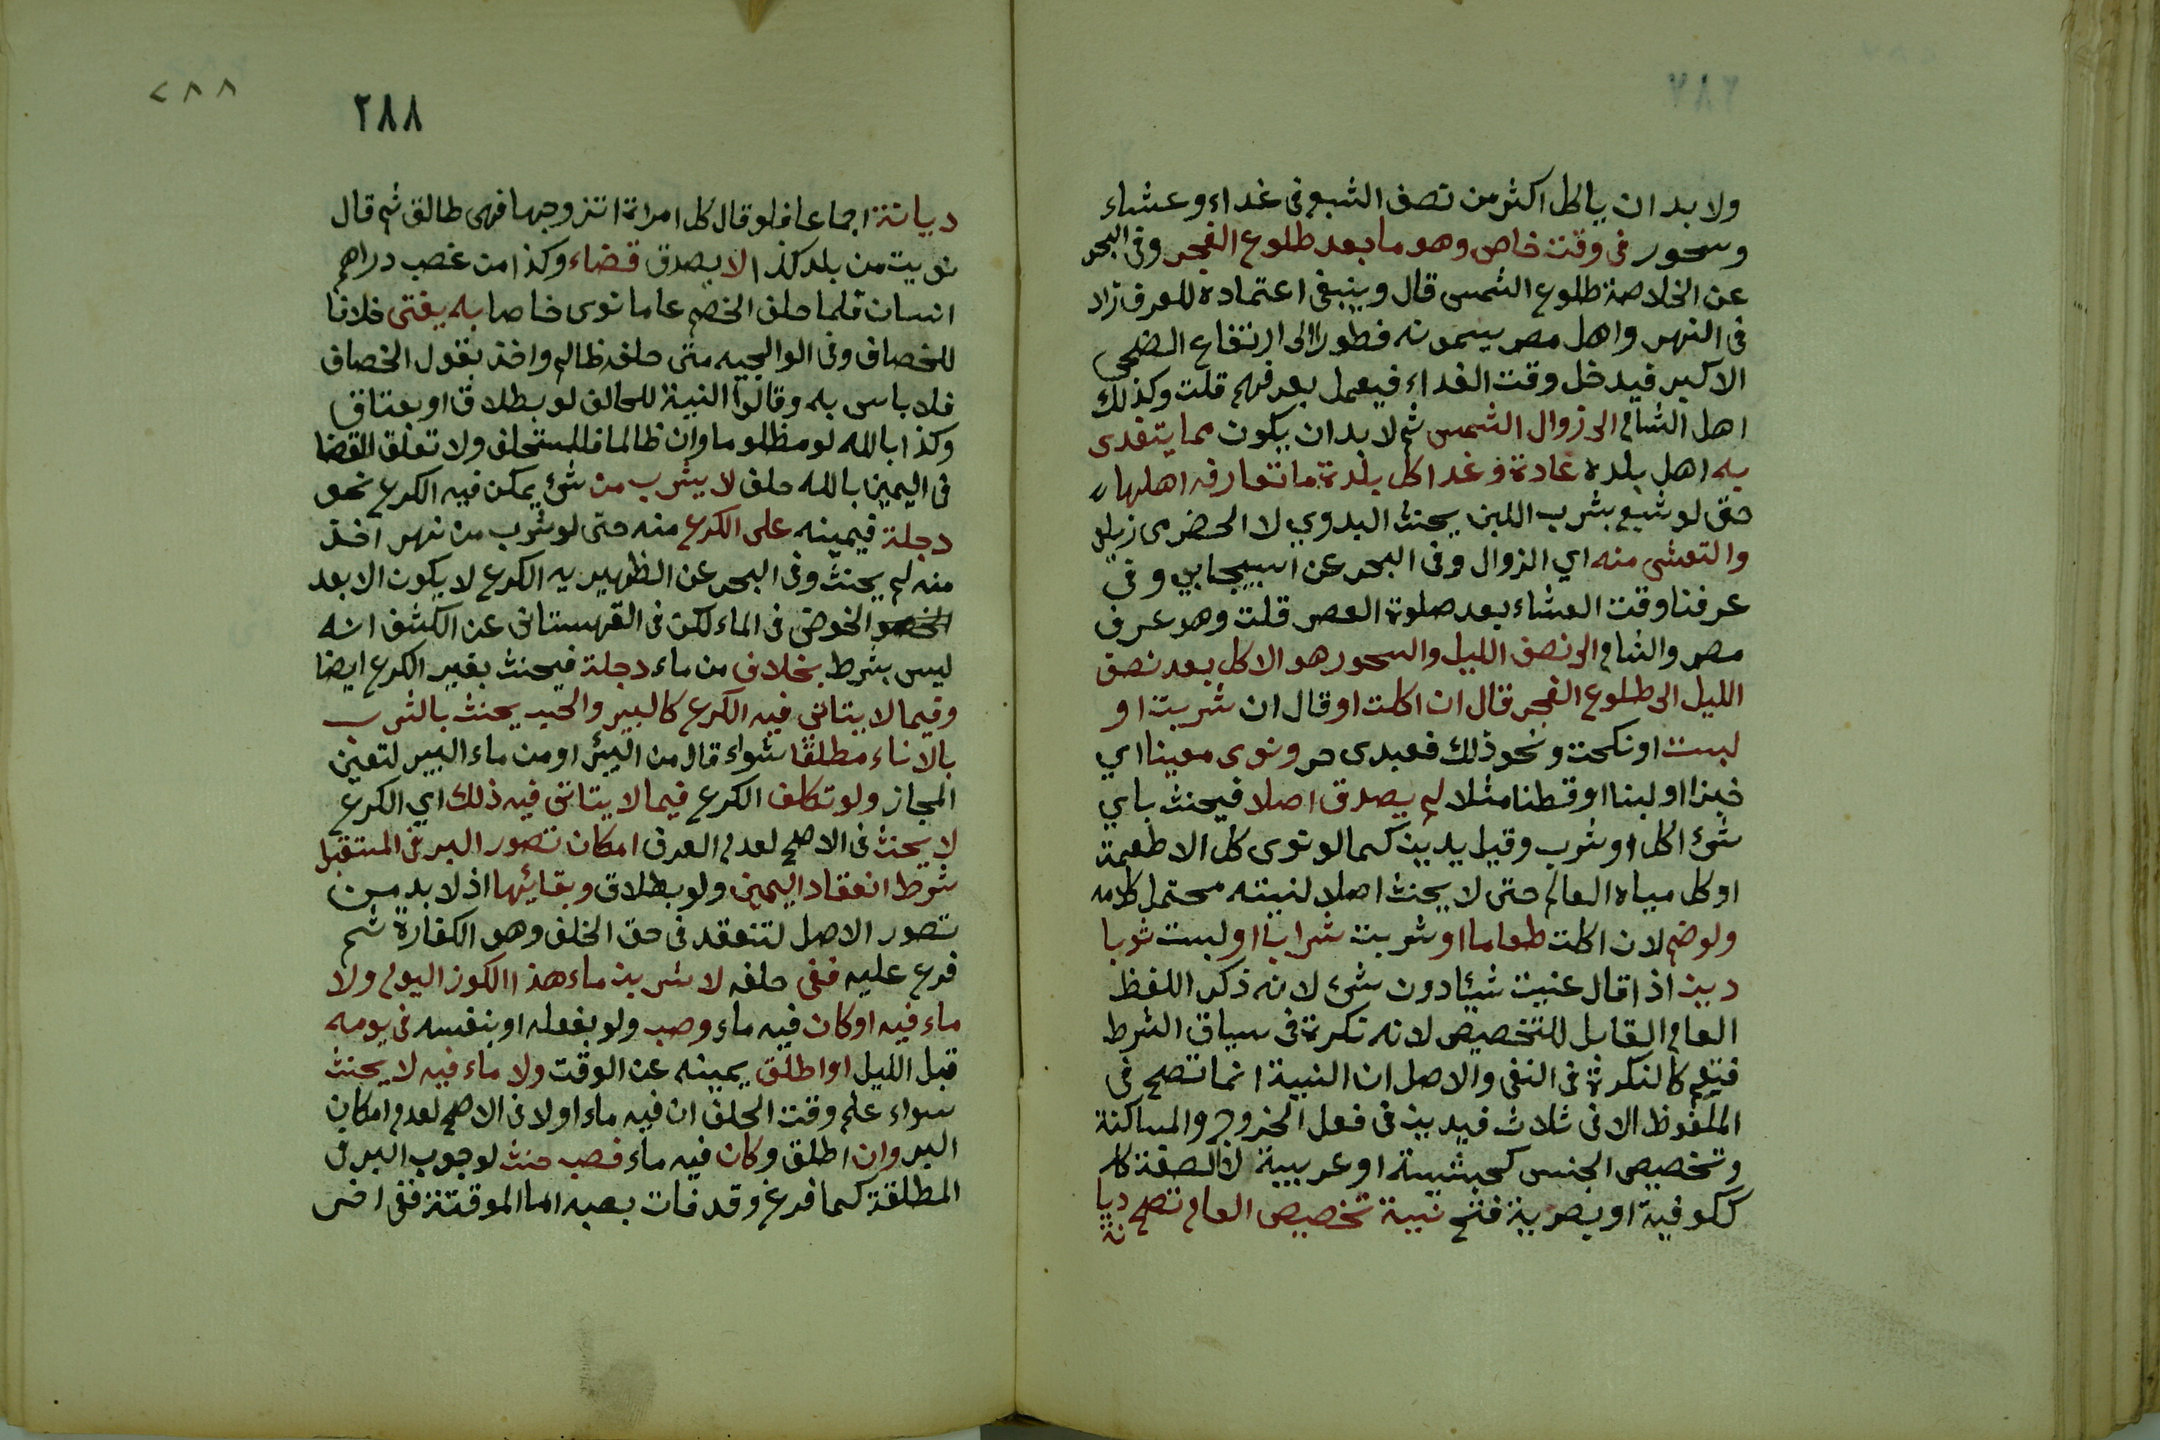 ولا بد ان ياكل اكثر من نصف الشبع فى غداء وعشاء
وسحور فى وقت خاص وهو ما بعد طلوع الفجر وفى البحر
عن الخلاصة طلوع الشمس قال وينبغى اعتماده للعرف زاد
فى النهر واهل مصر يسمونه فطورا الى ارتفاع الضحى
الاكبر فيدخل وقت الغداء فيعمل بعرفهم قلت وكذلك
اهل الشام الى زوال الشمس ثم لا بد ان يكون مما يتغدى
به اهل بلده عادة وغدا كل بلدة ما تعارفه اهلها
حتى لو شبع بشرب اللبن يحنث البدوي لا الحضرى زيلعى
والتعشى منه اي الزوال وفى البحر عن اسبيجابي وفي
عرفنا وقت العشاء بعد صلوة العصر قلت وهو عرف
مصر والشام الى نصف الليل والسحور هو الاكل بعد نصف
الليل الى طلوع الفجر قال ان اكلت او قال ان شربت او
لبست او نكحت ونحو ذلك فعبدى حر ونوى معينا اي
خبزا او لبنا او قطنا مثلا لم يصدق اصلا فيحنث باي
شئ اكل او شرب وقيل يدين كما لو نوى كل الاطعمة
او كل مياه العالم حتى لا يحنث اصلا لنيته محتمل كلامه
ولو ضم لان اكلت طعاما او شربت شرابا او لبست ثوبا
دين اذا قال عنيت شيئا دون شئ لانه ذكر اللفظ
العام القابل للتخصيص لانه نكرة فى سياق الشرط
فتعم كالنكرة فى النفى والاصل ان النية انما تصح فى
الملفوظ الا فى ثلاث فيدين فى فعل الخروج والمساكنة
وتخصيص الجنس كحبشية او عربية لا الصفة
ككوفية او بصرية فتح نية تخصيص العام تصح ديا
نة
٢٨٨
٢٨٨
ديانة اجماعا فلو قال كل امراة اتزوجها فهى طالق ثم قال
نويت من بلد كذا لا يصدق قضاء وكذا من غصب دراهم
انسان فلما حلف الخصم عاما نوى خاصا به يفتى خلافا
للخصاف وفى الوالجيه متى حلفه ظالم واخذ بقول الخصاف
فلا باس به وقالوا النية للحالف لو بطلاق او بعتاق
وكذا بالله لو مظلوما وان ظالما فللمستحلف ولا تعلق للقضا
فى اليمين بالله حلف لا يشرب من شئ يمكن فيه الكرع نحو
دجلة فيمينه على الكرع منه حتى لو شرب من نهر اخذ
منه لم يحنث وفى البحر عن الظهيريه الكرع لا يكون الا بعد
الخوض فى الماء لكن فى القهستانى عن الكشف انه
ليس بشرط بخلاف من ماء دجلة فيحنث بغير الكرع ايضا
وفيما لا يتاتى فيه الكرع كالبير والحب يحنث بالشرب
بالاناء مطلقا سواء قال من البئر او من ماء البير لتعين
المجاز ولو تكلف الكرع فيما لا يتاتى فيه ذلك اي الكرع
لا يحنث فى الاصح لعدم العرف امكان تصور البر فى المستقبل
شرط انعقاد اليمين ولو بطلاق وبقائها اذ لا بد من
تصور الاصل لتنعقد فى حق الخلف وهو الكفارة ثم
فرع عليه ففى حلفه لاشربن ماء هذا الكوز اليوم ولا
ماء فيه او كان فيه ماء وصب ولو بفعله او بنفسه فى يومه
قبل الليل او اطلق يمينه عن الوقت ولا ماء فيه لا يحنث
سواء علم وقت الحلف ان فيه ماء او لا فى الاصح لعدم امكان
البر وان اطلق وكان فيه ماء فصب حنث لوجوب البر فى
المطلقة كما فرغ وقد فات بصبه اما الموقتة ففى اخر